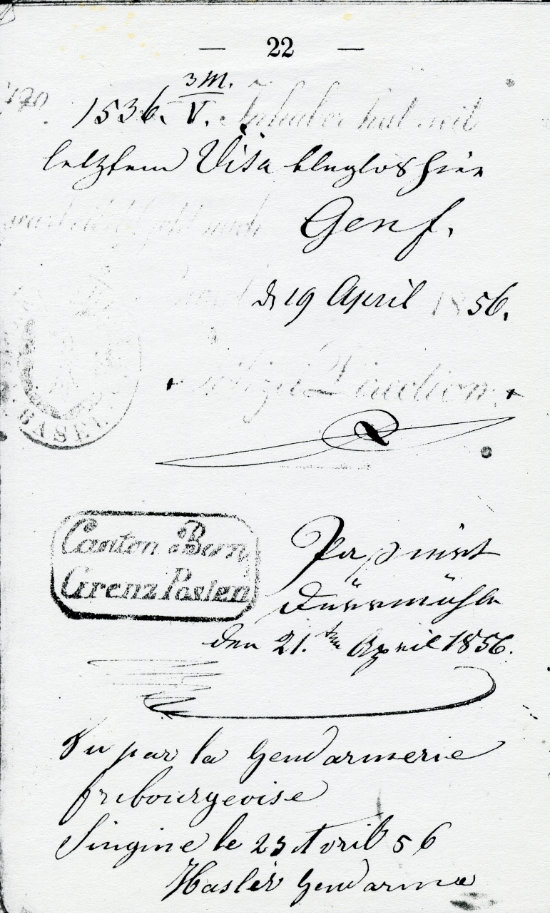 — 22 —
3 M.
1536. V. Inhaber hat mit
letztem Visa klaglos hier
Genf.
d. 19 April 1856.
Polizei Direction
BASEL
Canton Bern
Grenz Posten
Passirt
Dürrmühle
den 21.ten April 1856.
Vu par la Gendarmerie
fribourgeoise
Singine le 23 Avril 56
Hasler Gendarme